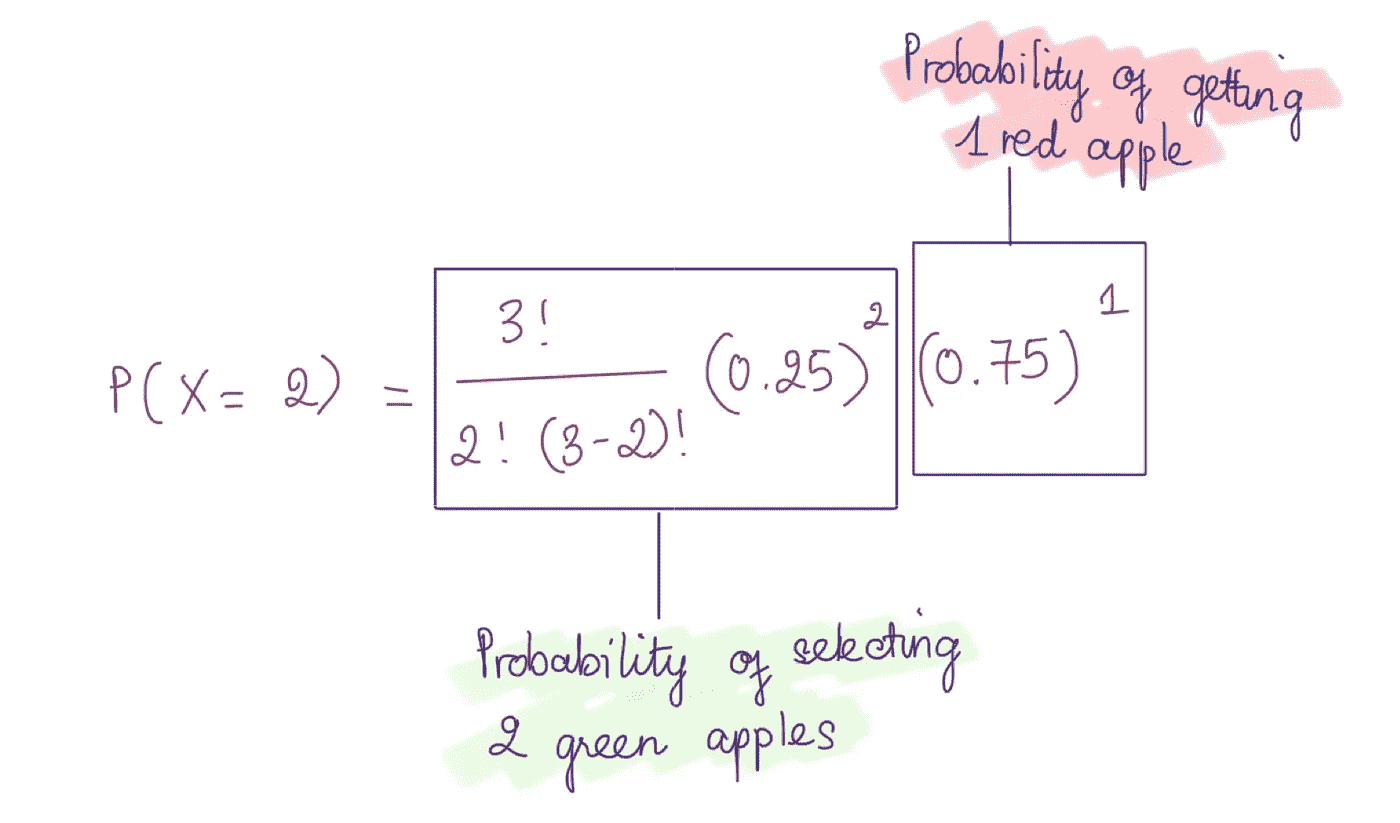 Probability of getting
1 red apple
P(X = 2) = 3! / 2! (3-2)! (0.25)² (0.75)¹
Probability of selecting
2 green apples